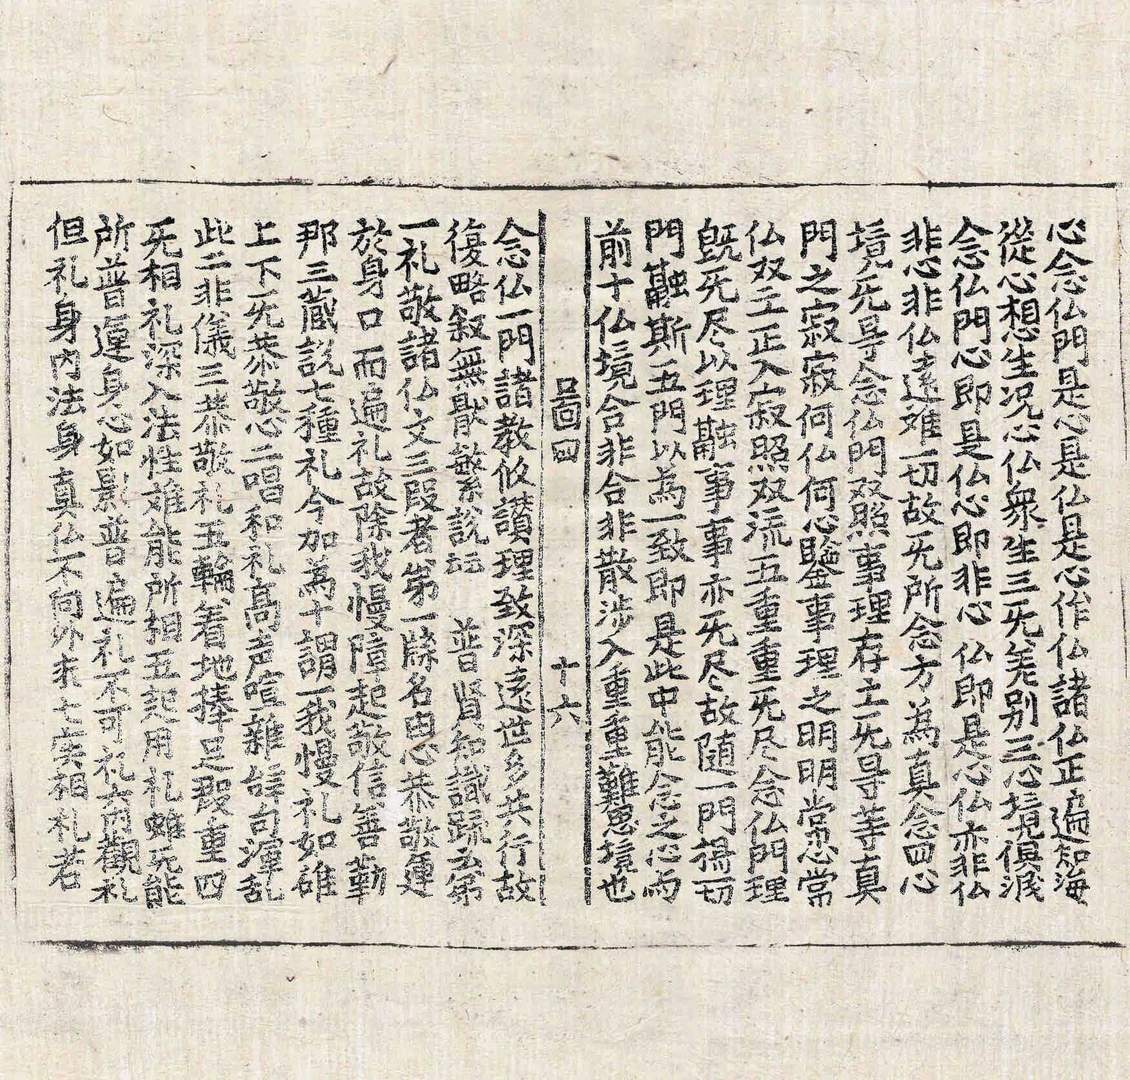 心念仏門是心是仏是心作仏諸仏正遍知海
從心想生况心仏衆生三旡差别三心境俱泯
念仏門心即是仏心即非心仏即是心仏亦非仏
非心非仏遠離一切故旡所念方為真念四心
境旡㝵念仏門双照事理存亡旡㝵等真
門之寂寂何仏何心鑒事理之明明常恋常
仏双亡正入宀寂照双流五重重旡尽念仏門理
旣旡尽以理融事事亦旡尽故随一門摄一切
門融斯五門以為一致即是此中能念之心而
前十仏境合非合非散涉入重重難思境也
圖四 十六
念仏一門諸教攸讚理致深遠世多共行故
復略叙無猒繁說云云 普賢知識疏云第
一礼敬諸仏文三段者第一牒名由心恭敬運
於身口而遍礼故除我慢障起敬信善勒
那三蔵説七種礼今加為十謂一我慢礼如碓
上下旡恭敬心二唱和礼高声喧雜辞句渾乱
此二非儀三恭敬礼五輪着地捧足殷重四
旡相礼深入法性離能所相五起用礼雖旡能
所普運身心如影普遍礼不可礼六内觀礼
但礼身内法身真仏不向外求七実相礼若